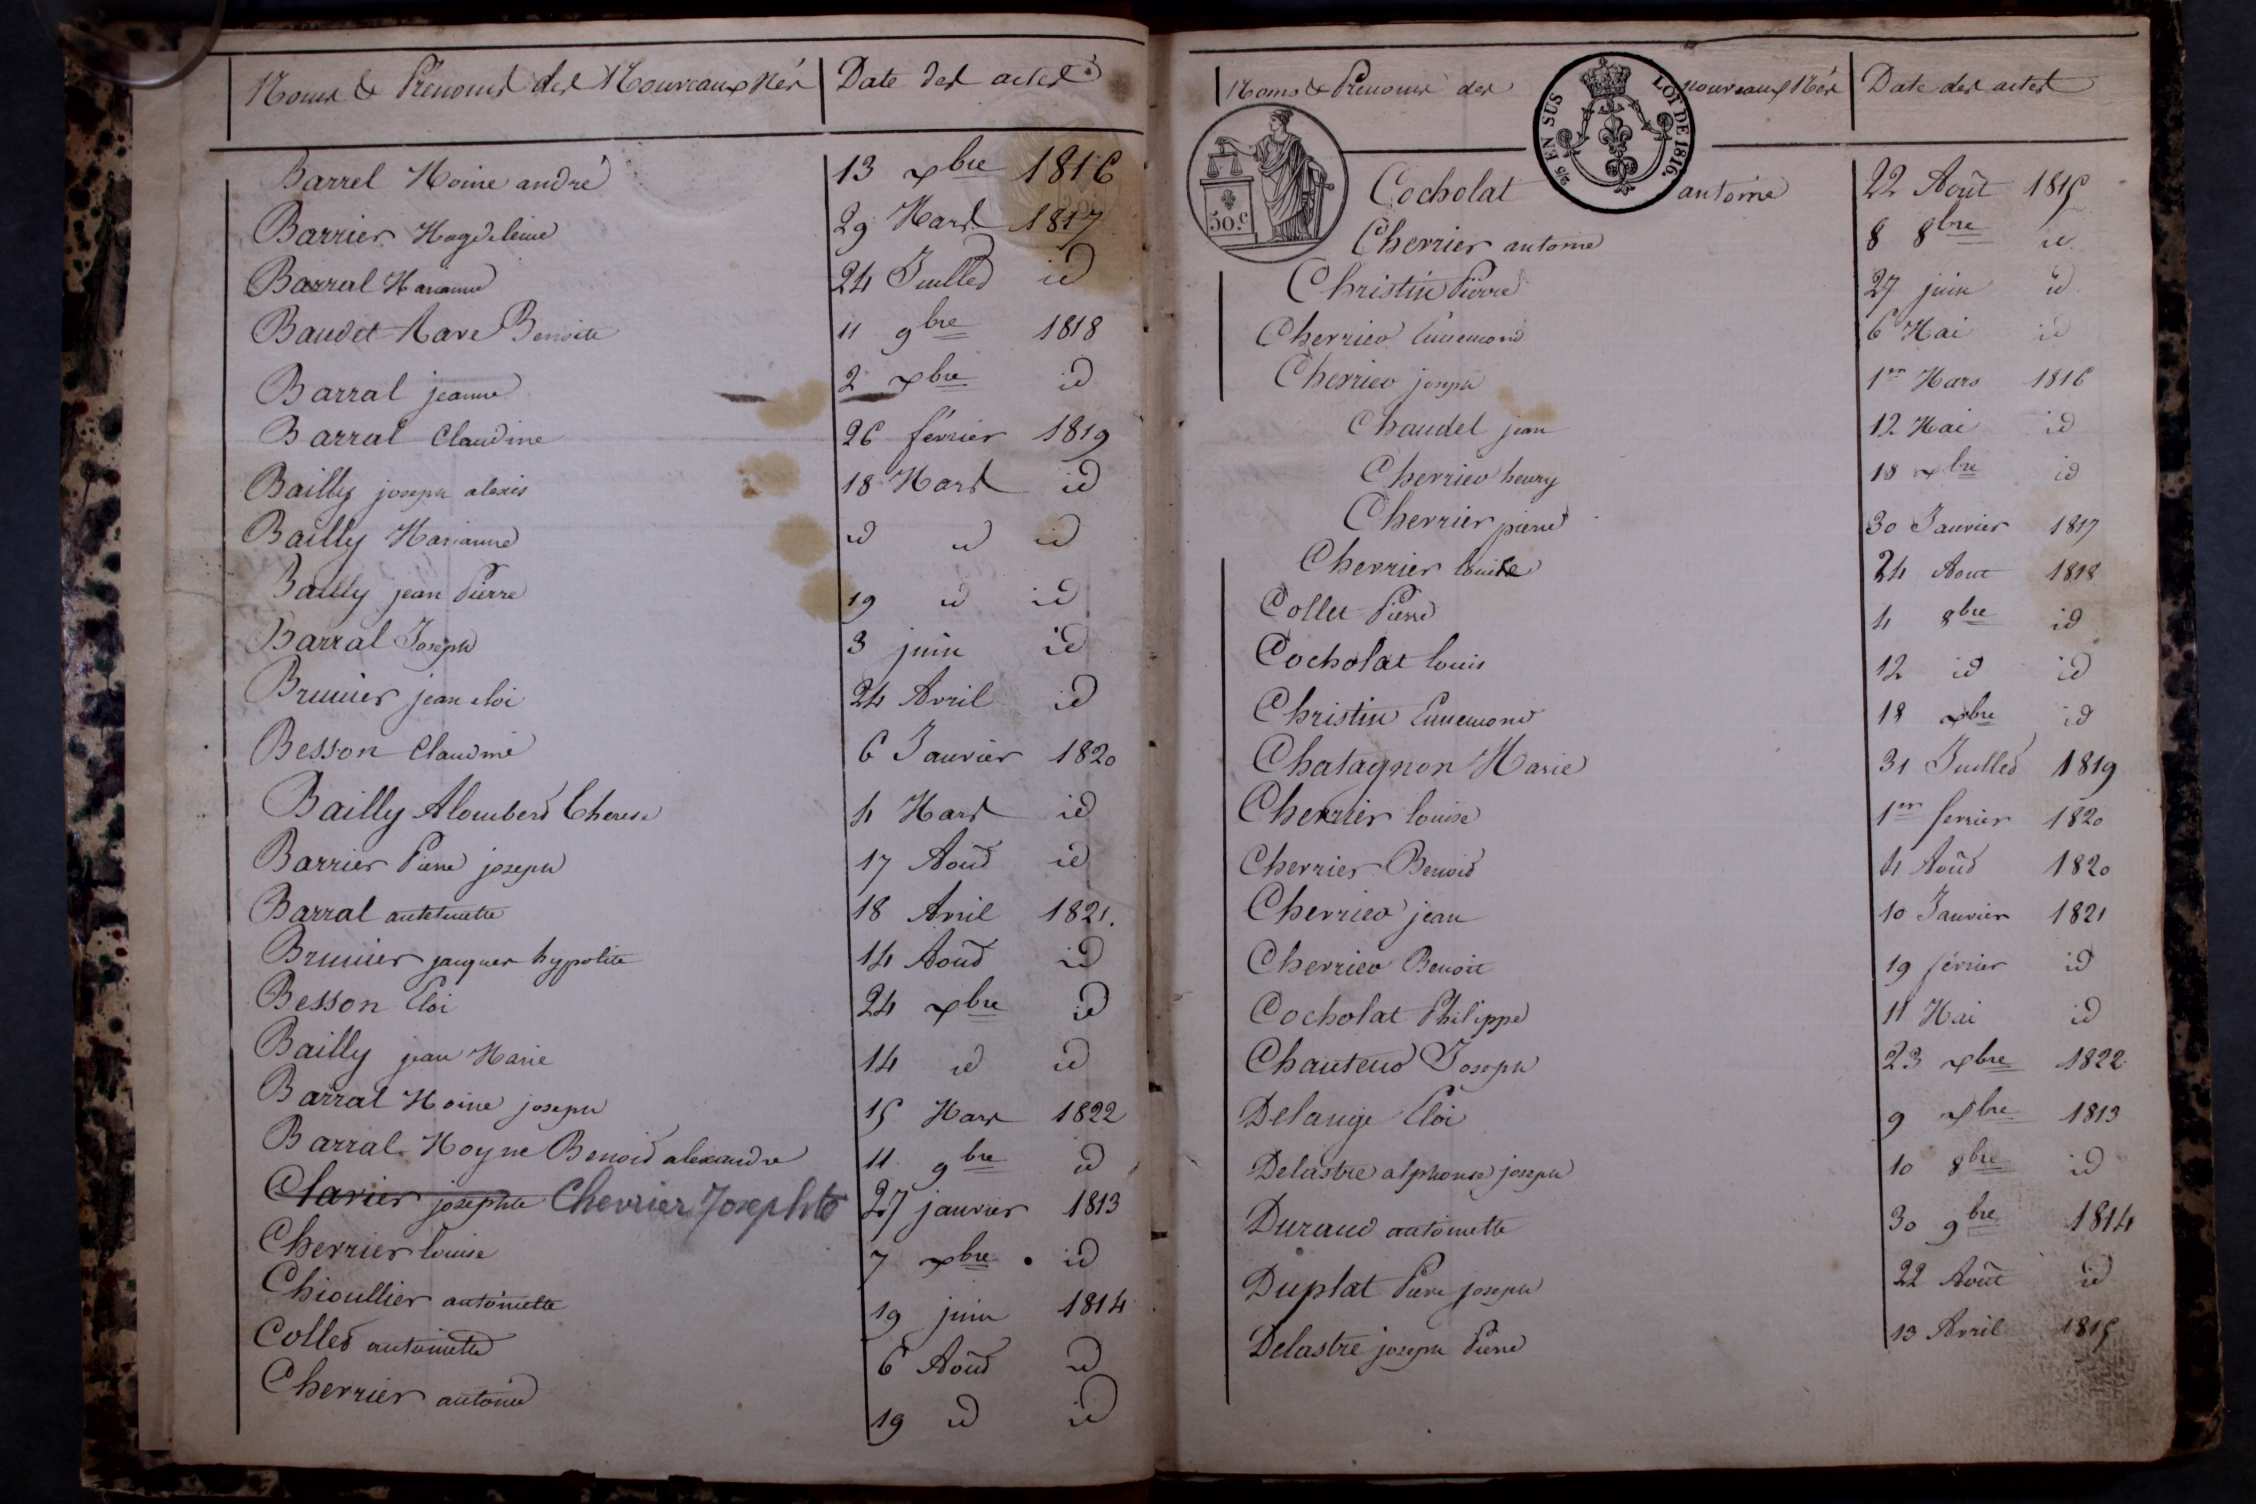 Noms & Prénoms des Nouveaux Nés Date des actes
Barrel Moine andré 13 xbre 1816
Barrier Magdeleine 29 Mars 1817
Barral Marianne 24 Juillet id
Baudet Rave Benoite 11 9bre 1818
Barral jeanne 2 xbre id
Barral Claudine 26 février 1819
Bailly joseph alexis 18 Mars id
Bailly Marianne id id id
Bailly jean Pierre 19 id id
Barral Joseph 3 juin id
Brunier jean eloi 24 Avril id
Besson Claudine 6 Janvier 1820
Bailly Alombert Therese 4 Mars id
Barrier Pierre joseph 17 Août id
Barral antoinette 18 Avril 1821.
Brunier jacques hypolite 14 Août id
Besson Eloi 24 xbre id
Bailly jean Marie 14 id id
Barral Moine joseph 15 Mars 1822
Barral Moyne Benoit alexandre 11 9bre id
Clavier josephte Cherrier Josephte 27 janvier 1813
Cherrier louise 7 xbre id
Chioullier antoinette 19 juin 1814
Collet antoinette 6 Août id
Cherrier antoine 19 id id
Noms & Prénoms des nouveaux Nés Date des actes
25 EN SUS LOI DE 1816.
50.c
Cocholat antoine 22 Août 1815
Cherrier antoine 8 8bre id
Christin Pierre 27 juin id
Cherrier Ennemond 6 Mai id
Cherrier joseph 1er Mars 1816
Chaudel jean 12 Mai id
Cherrier henry 18 xbre id
Cherrier pierre 30 Janvier 1817
Cherrier louise 24 Aout 1818
Collet Pierre 4 8bre id
Cocholat louis 12 id id
Christin Ennemond 18 xbre id
Chatagnon Marie 31 Juillet 1819
Cherrier louise 1er ferrier 1820
Cherrier Benoit 4 Août 1820
Cherrier jean 10 Janvier 1821
Cherrier Benoit 19 février id
Cocholat Philippe 11 Mai id
Chauteur Joseph 23 xbre 1822
Delange Eloi 9 xbre 1813
Delastre alphonse joseph 10 8bre id
Durand antoinette 30 9bre 1814
Duplat Pierre joseph 22 Août id
Delastre joseph Pierre 13 Avril 1815